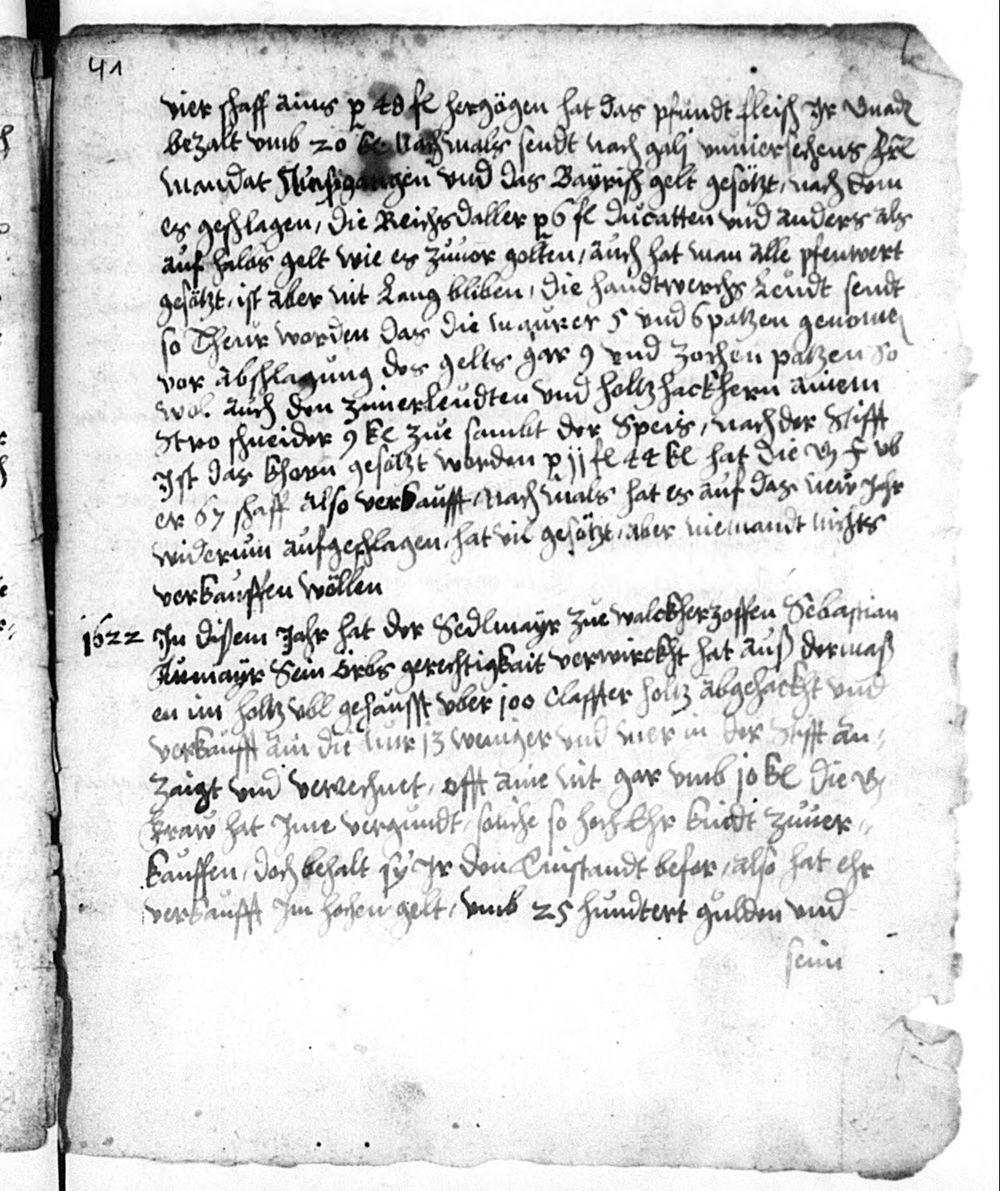 41
vier schaff ains p 48 fl hergögen hat das pfundt fleisch Ir Gnad
bezalt vmb 20 kl Nachmals sendt nach galj vnuersechens Frl
Mandat Außgangen vnd das Bayrisch gelt gesötzt, nach dem
es geschlagen, die Reichsdaller p 6 fl ducatten vnd anders als
auf halbs gelt wie es zuuor golten, auch hat man alle pfenwert
gesötzt, ist aber nit Lang bliben, die handtwerchs Leudt sendt
so Theur worden das die Maurer 5 vnd 6 patzen genomen
vor abschlagung des gelts gar 9 vnd Zechen patzen So
wol auch den Zimerleudten vnd holtzhackhern ainem
Stro schneider 9 kl zue sambt der Speis, nach der Stifft
Ist das khorn gesötzt worden p 11 fl 44 kl hat die g f vb
er 67 schaff also verkaufft, Nachmals hat es auf das new Jahr
widerum aufgeschlagen, hat vil gesötzt, aber niemandt nichts
verkauffen wöllen
1622 In disem Jahr hat der Sedlmayr zue walckherzoffen Sebastian
Aumayr Sein Erbs gerechtigkait verwirckht hat auß dermaß
en im holtz vbl gehausst vber 100 Claffter holtz abgehackht vnd
verkaufft ain die nur 13 weniger vnd mer in der Stifft an=
zaigt vnd verrechnet, offt aine nit gar vmb 10 kl die g
Fraw hat Ime vergundt, soliche so hoch Ehr kindt zuuer=
kauffen, doch behalt sy Ir den Einstandt befor, also hat ehr
verkaufft Im hochen gelt, vmb 25 hundtert gulden vnd
seim